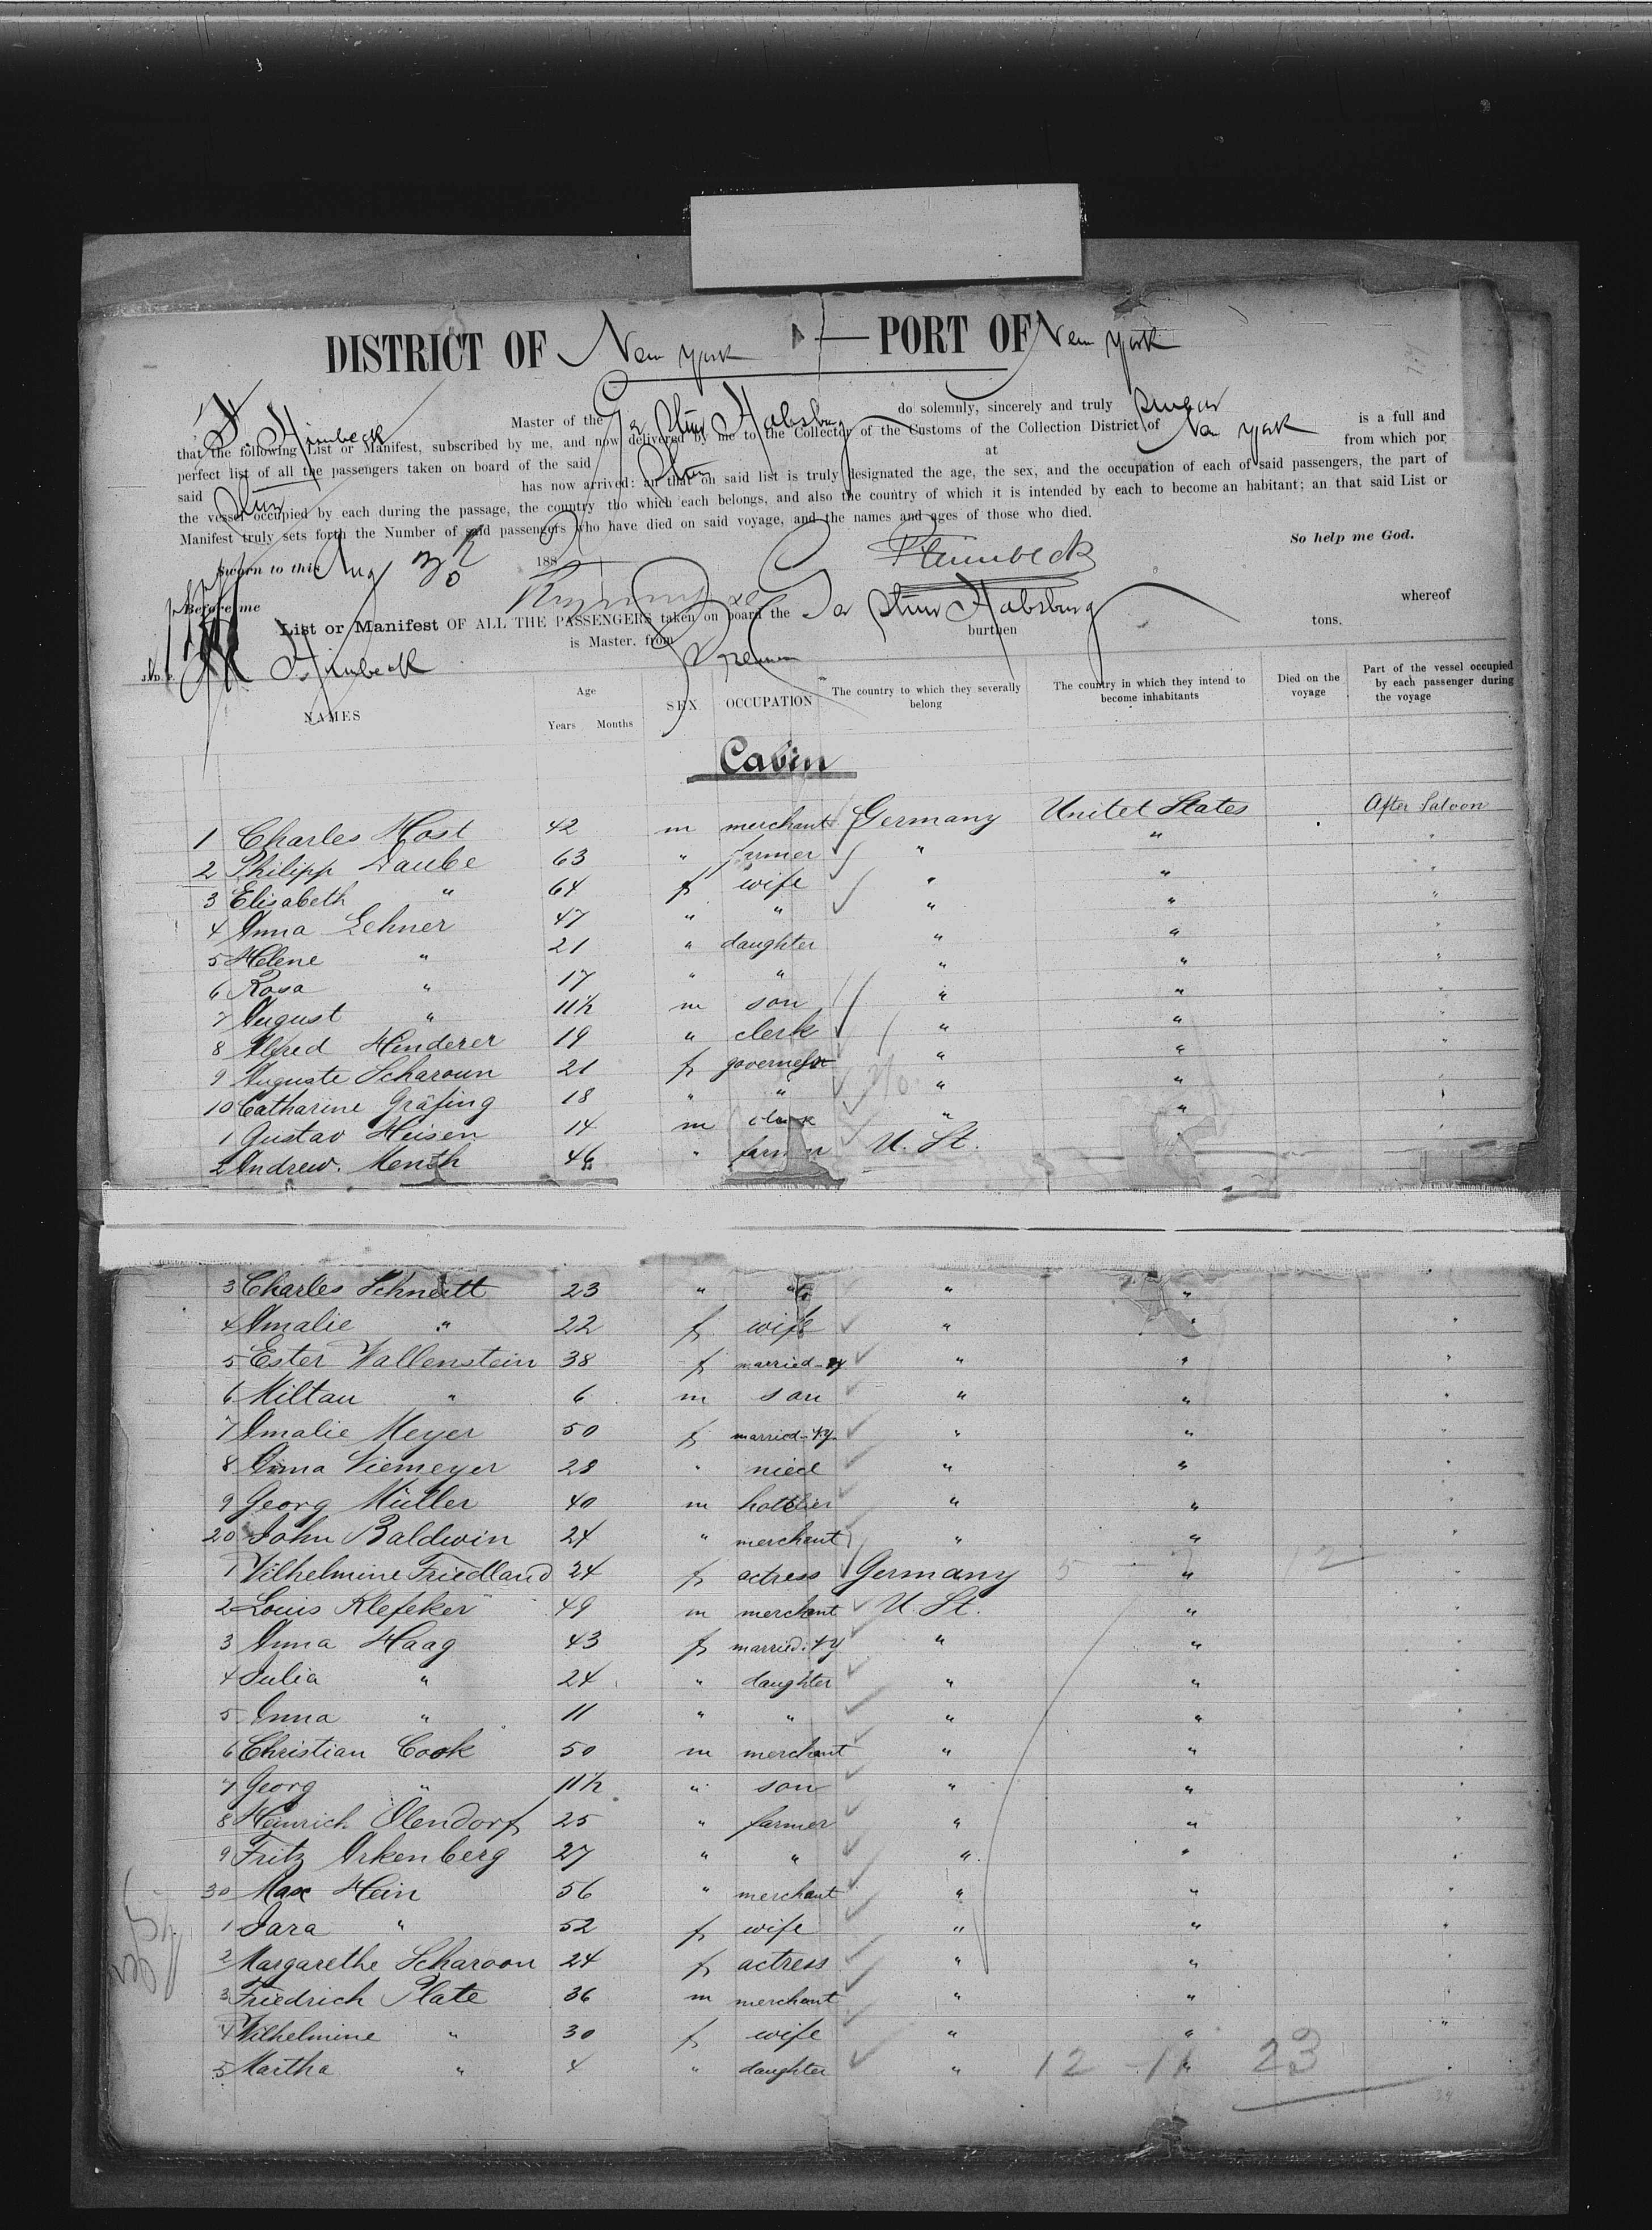 DISTRICT OF New York — PORT OF New York
F. Himbeck Master of the Ger Stmr Habsburg do solemnly, sincerely and truly swear
that the following List or Manifest, subscribed by me, and now delivered by me to the Collector of the Customs of the Collection District of New York is a full and
perfect list of all the passengers taken on board of the said Stmr at from which por
said Stmr has now arrived: an that on said list is truly designated the age, the sex, and the occupation of each of said passengers, the part of
the vessel occupied by each during the passage, the country tho which each belongs, and also the country of which it is intended by each to become an habitant; an that said List or
Manifest truly sets forth the Number of said passengers who have died on said voyage, and the names and ages of those who died.
So help me God.
Sworn to this Aug 30 188
Before me
List or Manifest OF ALL THE PASSENGERS taken on board the Ger Stmr Habsburg whereof
Himbeck is Master. from Bremen burthen tons.
NAMES Age Years Months SEX OCCUPATION The country to which they severally belong The country in which they intend to become inhabitants Died on the voyage Part of the vessel occupied by each passenger during the voyage
Cabin
1 Charles Most 42 m merchant Germany Unitet States After Saloon
2 Philipp Daube 63 " farmer " " "
3 Elisabeth " 64 f wife " " "
4 Anna Lehner 47 " " " " "
5 Helene " 21 " daughter " " "
6 Rosa " 17 " " " " "
7 August " 11½ m son " " "
8 Alfred Hinderer 19 " clerk " " "
9 Auguste Scharoun 21 f governess " " "
10 Catharine Gräfing 18 " " " " "
1 Gustav Heisen 14 m clerk " " "
2 Andrew. Mensh 46 " farmer U. St. " "
3 Charles Schmitt 23 " " " " "
4 Amalie " 22 f wife " " "
5 Ester Wallenstein 38 f married " " "
6 Miltau " 6 m son " " "
7 Amalie Meyer 50 f married " " "
8 Anna Niemeyer 28 " niece " " "
9 Georg Müller 40 m hotelier " " "
20 John Baldwin 24 " merchant " " "
1 Wilhelmine Friedland 24 f actress Germany 5 7 12 " "
2 Louis Klefeker 49 m merchant U. St. " "
3 Anna Haag 43 f married " " "
4 Julia " 24 " daughter " " "
5 Anna " 11 " " " " "
6 Christian Cook 50 m merchant " " "
7 Georg " 11½ " son " " "
8 Heinrich Olendorf 25 " farmer " " "
9 Fritz Arkenberg 27 " " " " "
30 Max Hein 56 " merchant " " "
1 Sara " 52 f wife " " "
2 Margarethe Scharoon 24 f actress " " "
3 Friedrich Plate 36 m merchant " " "
4 Wilhelmine " 30 f wife " " "
5 Martha " 4 " daughter " 12 11 23 " "